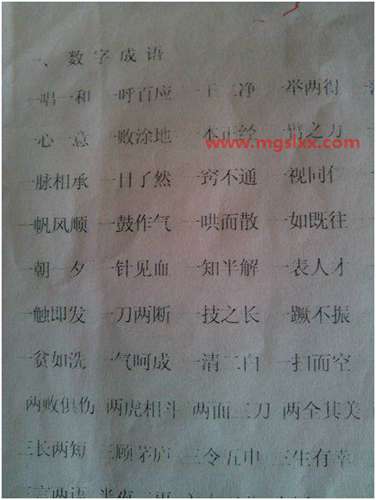 一、数字成语
一唱一和 一呼百应 一干二净 一举两得
一心一意 一败涂地 一本正经 一臂之力
www.mgslxx.com
一脉相承 一目了然 一窍不通 一视同仁
一帆风顺 一鼓作气 一哄而散 一如既往
一朝一夕 一针见血 一知半解 一表人才
一触即发 一刀两断 一技之长 一蹶不振
一贫如洗 一气呵成 一清二白 一扫而空
两败俱伤 两虎相斗 两面三刀 两全其美
三长两短 三顾茅庐 三令五申 三生有幸
三言两语